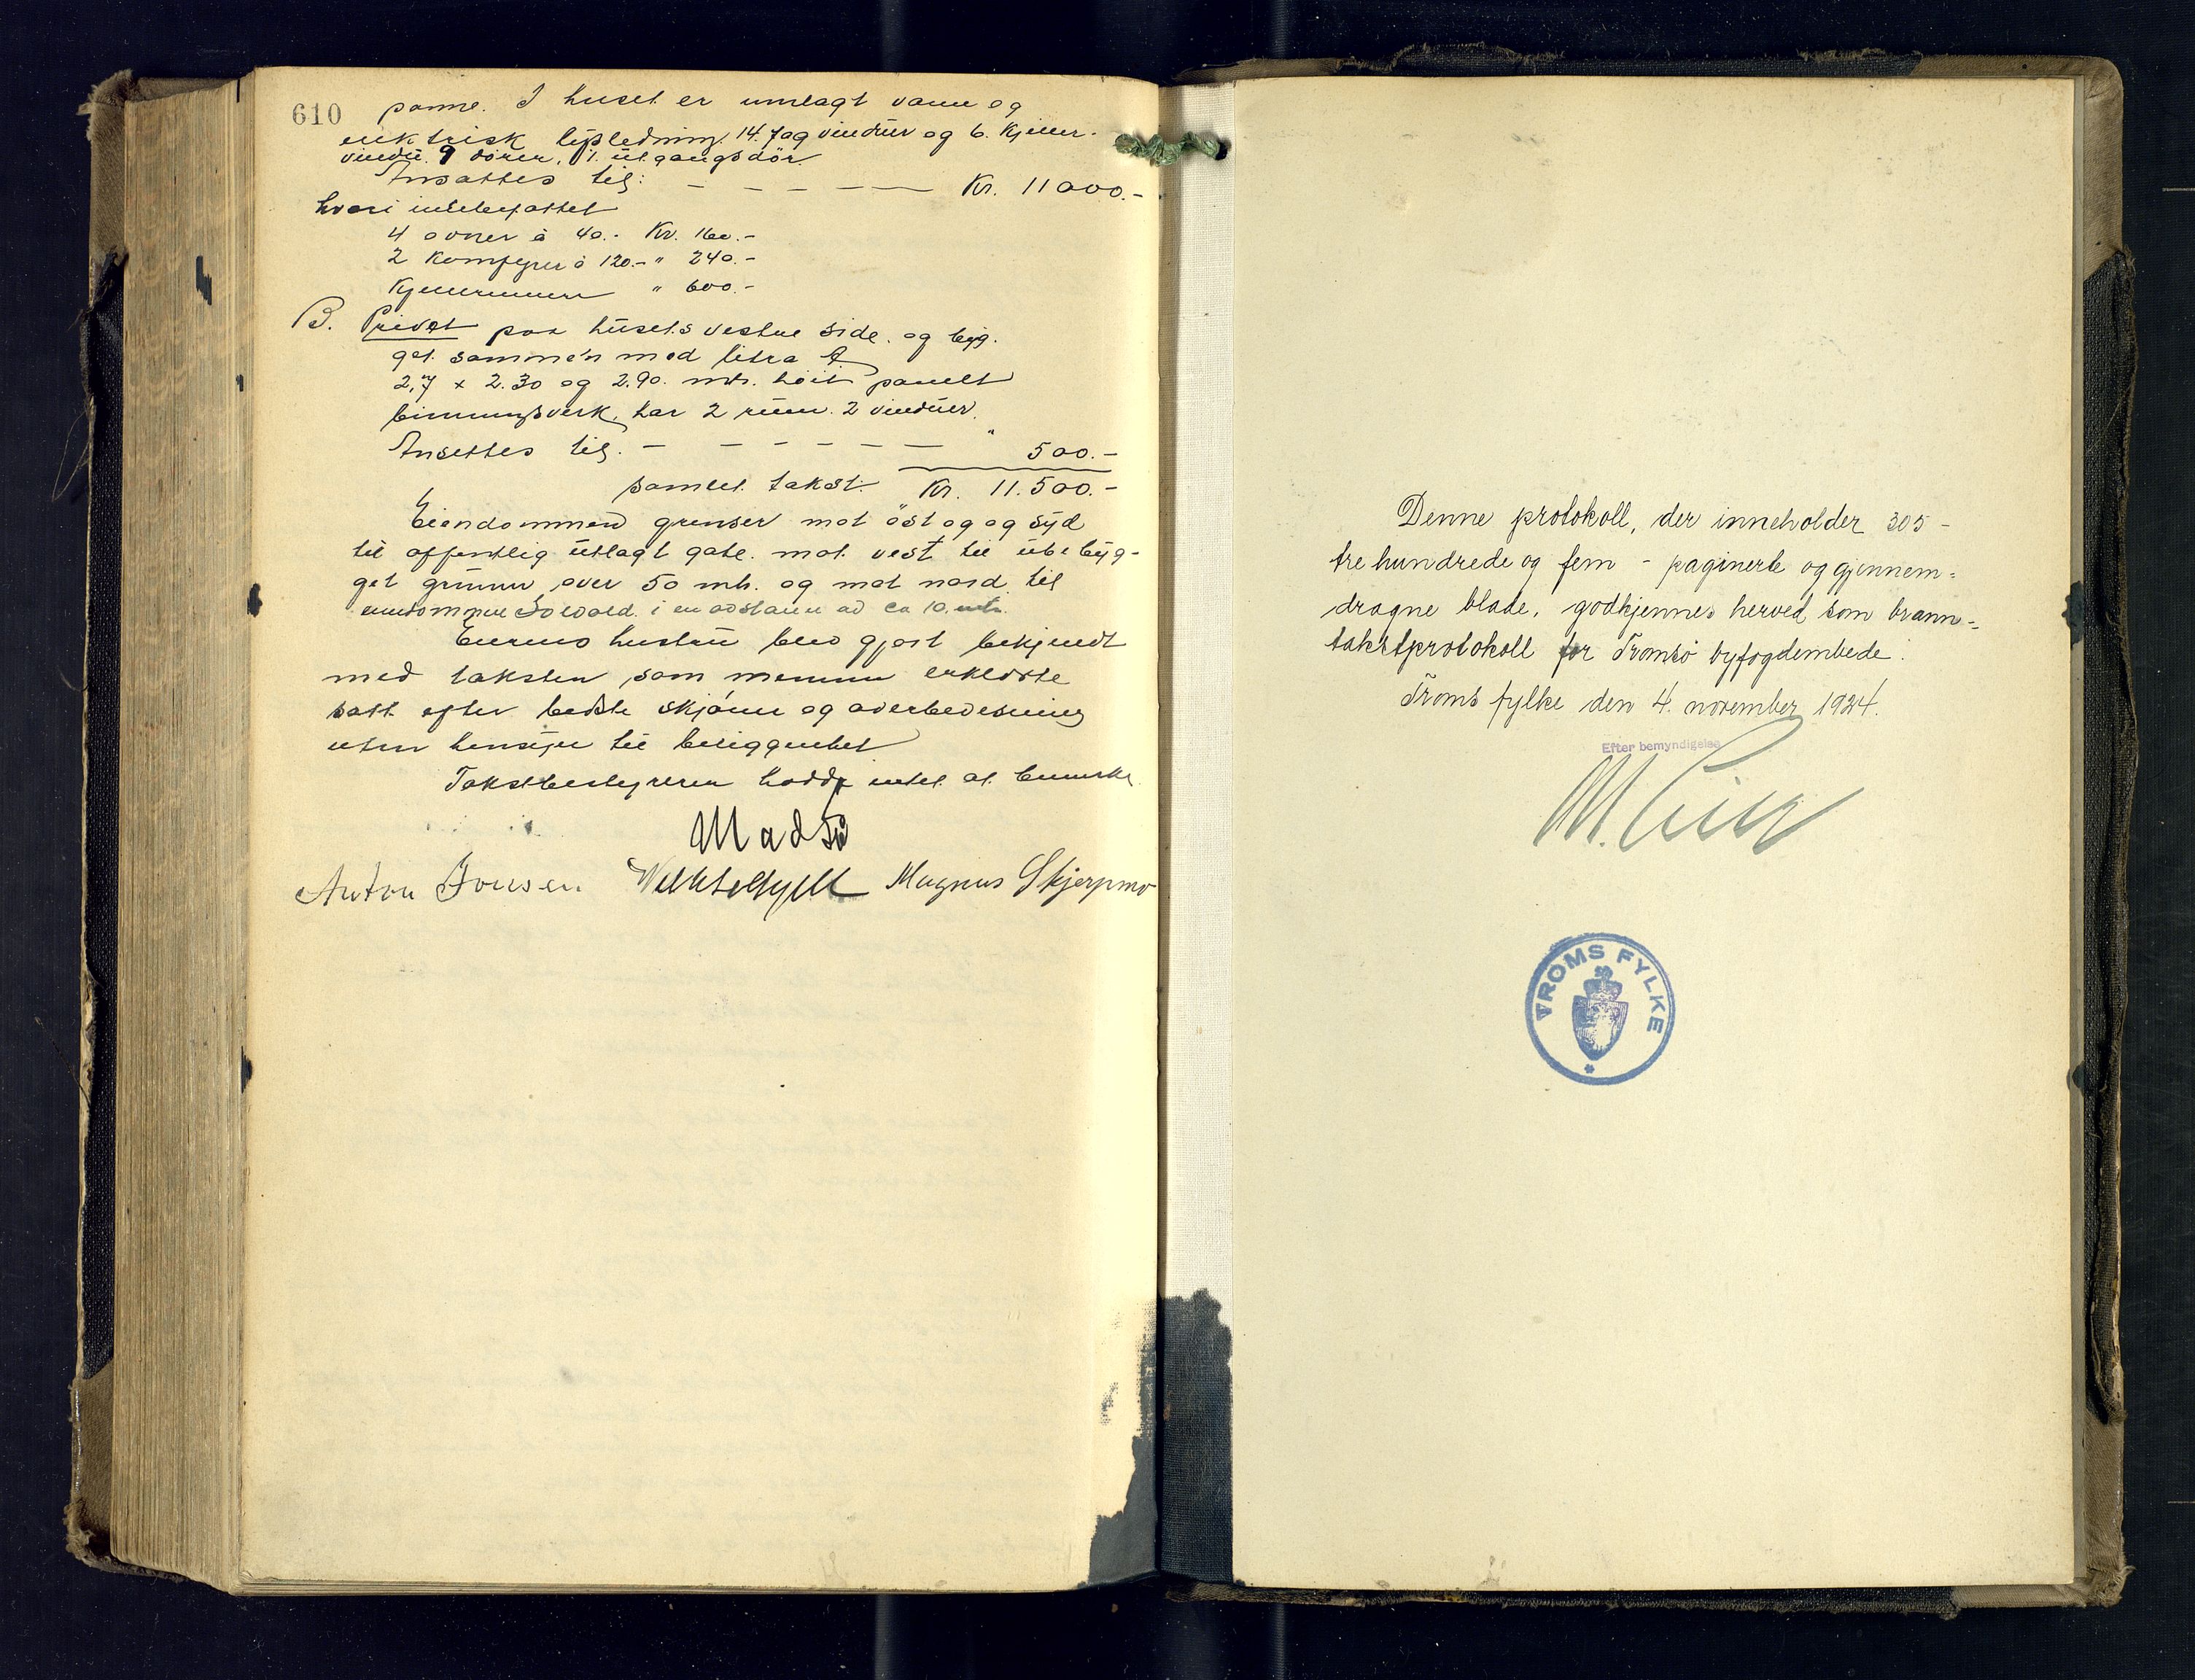 610 panne. I huset er innlagt vann og
elektrisk lysledning. 14. fag vinduer og 6. kjeller-
vindu. 9 dörer, 1. utgangsdör.
Ansattes til: - - - - - Kr. 11000.-
hvori indebefattet
4 ovner à 40.- Kr. 160.-
2 Komfyrer à 120.- " 240.-
Kjellermuren " 600.-
B. Privet paa husets vestre side. og byg-
get sammen med litra A
2,7 x 2.30 og 2.90. mtr. höit panelt
binningsverk, har 2 rum. 2 vinduer.
Ansettes til. - - - - - - " 500.-
samlet takst. Kr. 11.500.-
Eiendommen grenser mot öst og og syd
til offentlig utlagt gate. mot. vest til ubebyg-
get grunn, over 50 mtr. og mot nord til
eiendommen Solvold. i en avstann av ca 10. mtr.
Eierens hustru blev gjort bekjendt
med taksten som mennene erklærte
satt efter bedste skjönn og overbevisning
uten hensyn til beliggenhet
Takstbestyreren hadde intet at bemerke
Madsö
Anton Jonsen Magnus Skjerpmo
Denne protokoll, der inneholder 305 -
tre hundrede og fem - paginerte og gjennem-
dragne blade, godkjennes herved som brann-
takstprotokoll for Tromsö byfogdembede.
Troms fylke den 4. november 1924.
Efter bemyndigelse
TROMS FYLKE